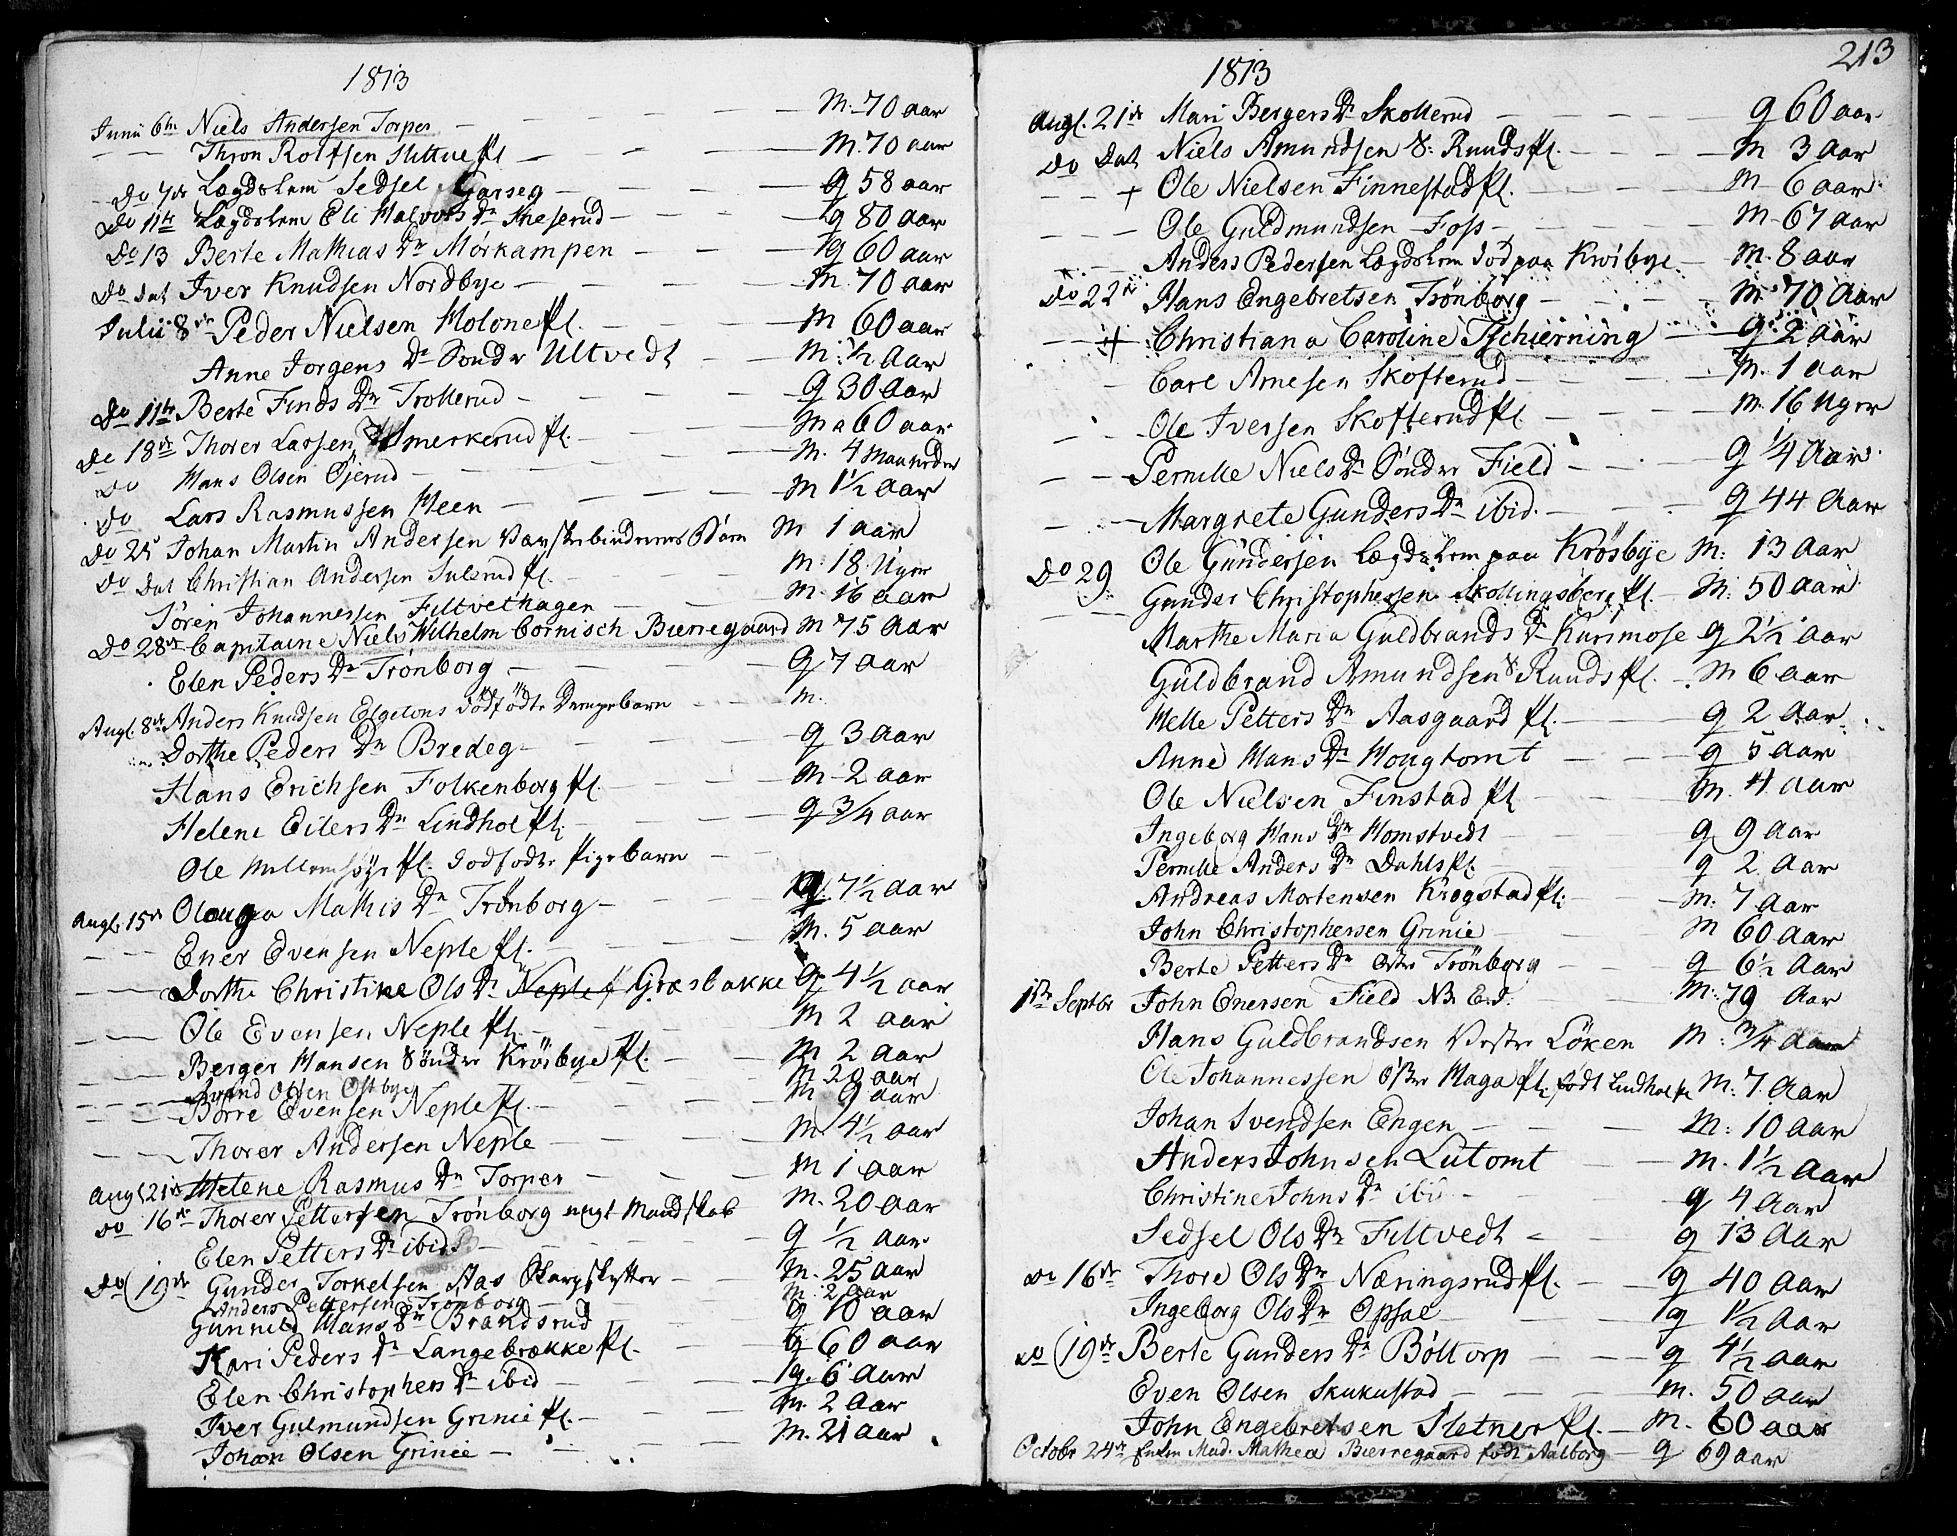 1813
Junii 6te Niels Andersen Torper — M. 70 aar
Thron Rolfsen Slittue pl — M. 70 aar
Do 7de Lægdslem Sedsel Garseg — q 58 aar
Do 11te Lægdslem Eli Halvors Dr Sneserud — q 80 aar
Do 13 Berte Mathias Dr Mørkampen — q 60 aar
Do dat Iver Knudsen Nordbye — M. 70 aar
Julii 8de Peder Nielsen Holone pl. — M 60 aar
Anne Jorgens Dr Sondr Ultvedt — M: ½ aar
Do 11te Berte Finds Dr Trollerud — q 30 aar
Do 18de Thorer Larsen Smerkerud pl. — M a 60 aar
Do Hans Olsen Ojerud — M. 4 Maaneder
Do Lars Rasmussen Heen — M 1½ aar
Do 25 Johan Martin Andersen Børn M 1 aar
Do dat Christian Andersen Sulerud pl. — M: 18 Uger
Sören Johannessen Filtvethagen — M. 16 aar
Do 28de Capitaine Niels Wilhelm Cornisch Bierregaard M 75 aar
Elen Peders Dr Trönborg — q 7 aar
Augl. 8de Anders Knudsen Elgetons dödfödte Drengebarn — M.
Dorthe Peders Dr Bredeg — q 3 aar
Hans Erichsen Folkenborg pl. — M 2 aar
Helene Eilers Dr Lindhol pl. — q ¾ aar
Ole pl. dodfodte Pigebarn —
Augl. 15de Olouga Mathis Dr Trønborg — q. 7½ aar
Ener Evensen Neple pl. — M. 5 aar
Dorthe Christine Ols Dr Neple Græsbakke q 4½ aar
Ole Evensen Neple pl. — M 2 aar
Berger Hansen Söndre Krösbye pl. — M 2 aar
Svend Olsen Ostbye — M 20 aar
Börre Evensen Neple pl. — M 9 aar
Thorer Andersen Neple — M. 4½ aar
Augl 21de Helene Rasmus Dr Torper — M 1 aar
do 16de Thorer Pettersen Trönborg ungt Mandskab M. 20 aar
Elen Petters Dr ibid — q ½ aar
Do (19de Gunder Torkelsen Aas Skarpskytter — M. 25 aar
Anders Pettersen Trönborg — M. 2 aar
Gunnild Hans Dr Brandsrud — q 10 aar
Kari Peders Dr Langebrække pl. — q 60 aar
Elen Christophers Dr ibid — q. 6 aar
Iver Gulmundsen Grinie pl. — M. 2 aar
Johan Olsen Grinie — M. 21 aar
213
1813
Augl. 21de Mari Bergers Dr Skollerud — q 60 aar
Do Dat Niels Amundsen S: Ruuds pl. — M 3 aar
+ Ole Nielsen Finnestad pl. — M 6 aar
Ole Guldmundsen Foss — M 67 aar
Anders Pedersen Lægdslem död paa Krösbye — M. 8 aar
Do 22de Hans Engebretsen Trönborg — M. 70 aar
+ Christiana Caroline Tschierning — q. 2 aar
Carl Arnesen Skofterud — M. 1 aar
Ole Iversen Skofterud pl — M. 16 Uger
Pernille Niels Dr Söndre Field — q ¼ aar
Margrete Gunders Dr ibid. — q 44 aar
Ole Gundersen Lægdslem paa Krösbye M: 13 aar
Do 29 Gunder Christophersen Skollingsberg pl. — M: 50 aar
Marthe Maria Guldbrands Dr Kurimose q 2½ aar
Guldbrand Amundsen S Ruuds pl. — M 6 aar
Helle Petters Dr Aasgaard pl. — q 2 aar
Anne Hans Dr Hougtomt — q 5 aar
Ole Nielsen Finstad pl — M. 4 aar
Ingeborg Hans Dr Homstvedt — q 9 aar
Pernille Anders Dr Dahls pl. — q 2 aar
Andreas Mortensen Krogstad pl: — M: 7 aar
John Christophersen Grinie — M 60 aar
Berte Petters Dr Østre Trönborg — q 6½ aar
1ste Septbr John Enersen Field NB. E.I. M: 79 aar
Hans Guldbrandsen Vestre Löken M: ¾ aar
Ole Johannessen Øster Haga pl. födt Lindhol pl M: 7 aar
Johan Svendsen Engen — M: 10 aar
Anders Johnsen Lutomt — M. 1½ aar
Christine Johns Dr ibid — q 4 aar
Sedsel Ols Dr Filtvedt — q 13 aar
do 16de Thore Ols Dr Næringsrud pl. — q 40 aar
Ingeborg Ols Dr Opsal — q 1½ aar
do (19de Berte Gunders Dr Böltorp — q 4½ aar
Even Olsen Skukustad — M. 50 aar
John Engebretsen Sletner pl. — M. 60 aar
Octobr 24de Enken Mad: Mathea Bierregaard födt Aalborg — q 69 aar